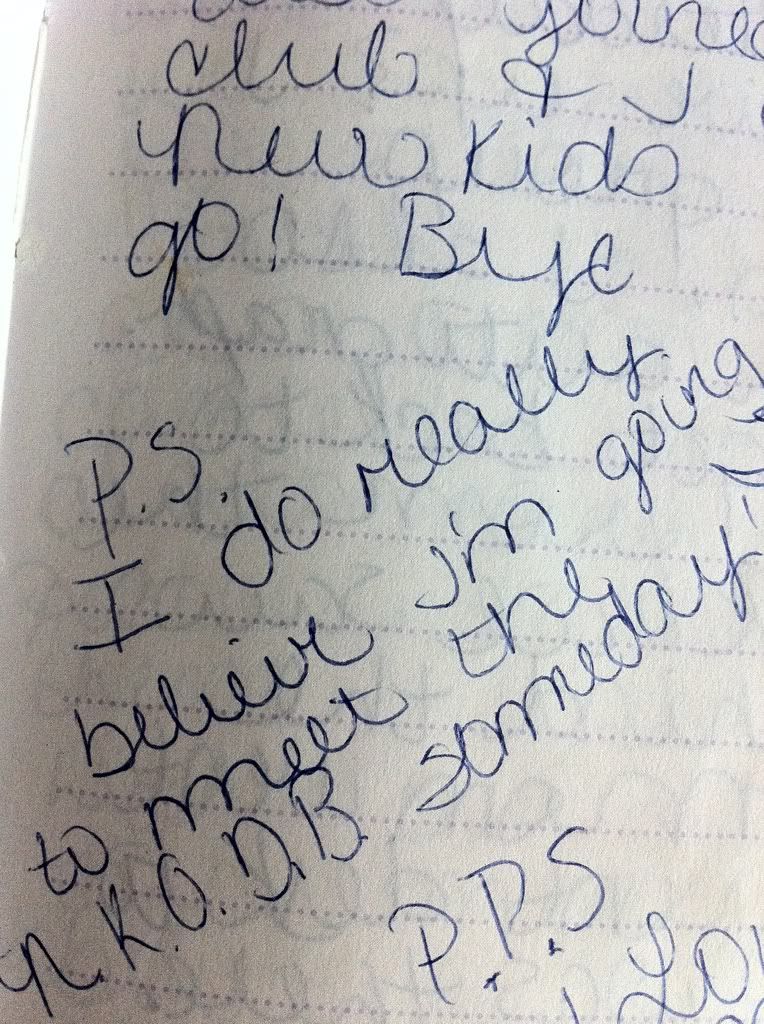 joined
club &
New Kids
go! Bye
P.S.
I do really
believe i'm going
to meet the
N.K.O.D.B. someday!
P.P.S